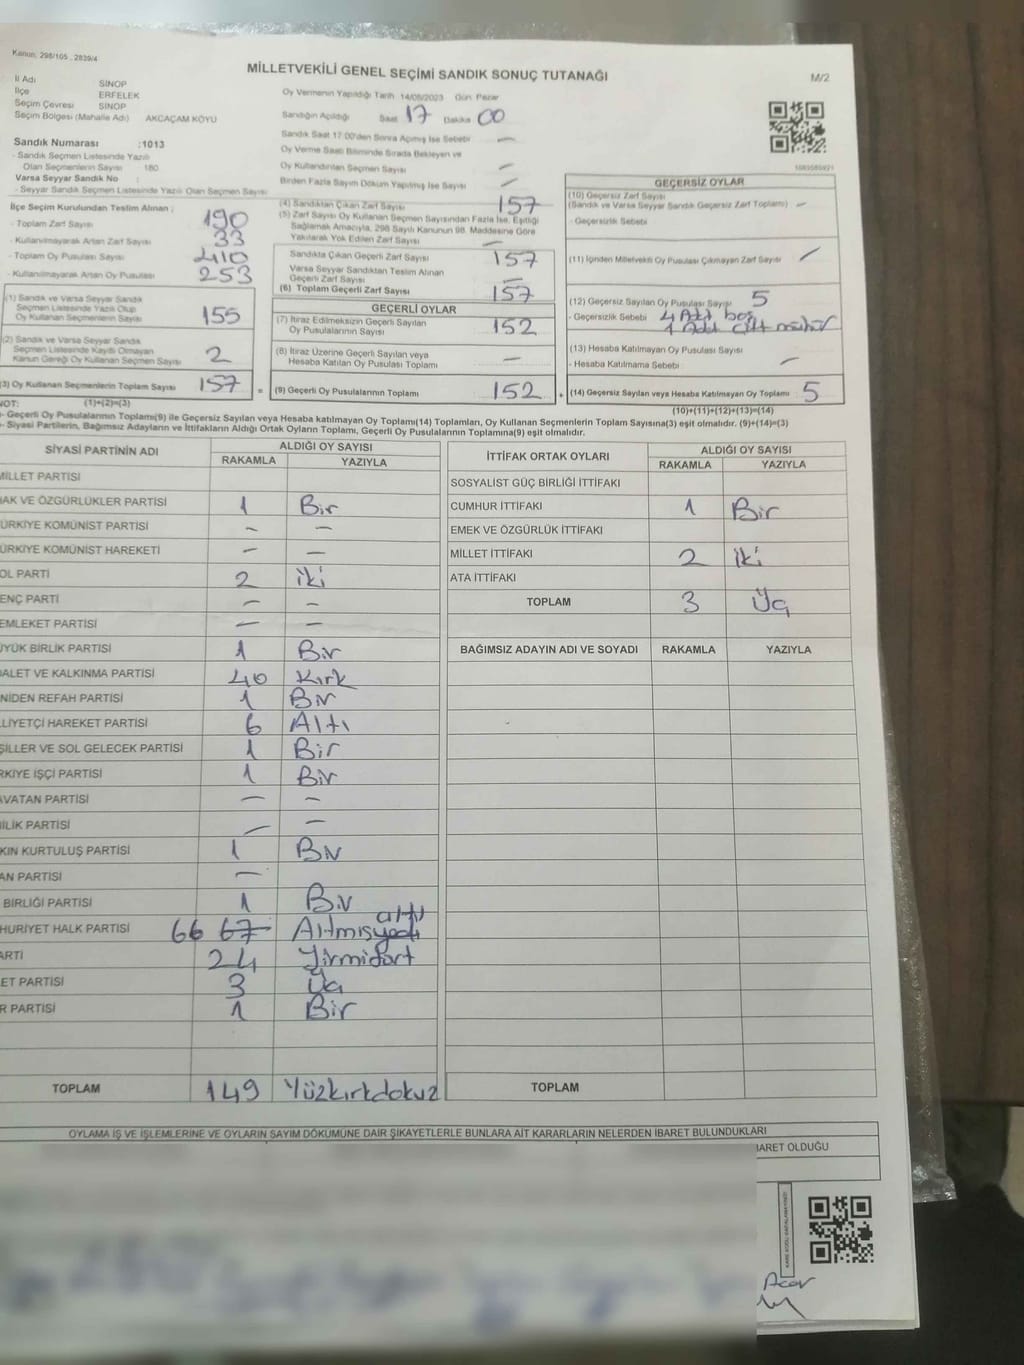 Kanun: 298/105, 2839/4
MİLLETVEKİLİ GENEL SEÇİMİ SANDIK SONUÇ TUTANAĞI
M/2
İl Adı SİNOP
İlçe ERFELEK
Seçim Çevresi SİNOP
Seçim Bölgesi (Mahalle Adı) AKCAÇAM KÖYÜ
Sandık Numarası :1013
- Sandık Seçmen Listesinde Yazılı
Olan Seçmenlerin Sayısı 180
Varsa Seyyar Sandık No :
- Seyyar Sandık Seçmen Listesinde Yazılı Olan Seçmen Sayısı
İlçe Seçim Kurulundan Teslim Alınan ;
- Toplam Zarf Sayısı 190
- Kullanılmayarak Artan Zarf Sayısı 33
- Toplam Oy Pusulası Sayısı 410
- Kullanılmayarak Artan Oy Pusulası 253
(1) Sandık ve Varsa Seyyar Sandık
Seçmen Listesinde Yazılı Olup
Oy Kullanan Seçmenlerin Sayısı 155
(2) Sandık ve Varsa Seyyar Sandık
Seçmen Listesinde Kayıtlı Olmayan
Kanun Gereği Oy Kullanan Seçmen Sayısı 2
(3) Oy Kullanan Seçmenlerin Toplam Sayısı 157 =
Oy Vermenin Yapıldığı Tarih 14/05/2023 Gün: Pazar
Sandığın Açıldığı Saat 17 Dakika 00
Sandık Saat 17:00'den Sonra Açılmış İse Sebebi —
Oy Verme Saati Bitiminde Sırada Bekleyen ve
Oy Kullandırılan Seçmen Sayısı —
Birden Fazla Sayım Döküm Yapılmış İse Sayısı —
(4) Sandıktan Çıkan Zarf Sayısı 157
(5) Zarf Sayısı Oy Kullanan Seçmen Sayısından Fazla İse, Eşitliği
Sağlamak Amacıyla, 298 Sayılı Kanunun 98. Maddesine Göre
Yakılarak Yok Edilen Zarf Sayısı —
Sandıkta Çıkan Geçerli Zarf Sayısı 157
Varsa Seyyar Sandıktan Teslim Alınan
Geçerli Zarf Sayısı —
(6) Toplam Geçerli Zarf Sayısı 157
GEÇERLİ OYLAR
(7) İtiraz Edilmeksizin Geçerli Sayılan
Oy Pusulalarının Sayısı 152
(8) İtiraz Üzerine Geçerli Sayılan veya
Hesaba Katılan Oy Pusulası Toplamı —
(9) Geçerli Oy Pusulalarının Toplamı 152 +
GEÇERSİZ OYLAR
(10) Geçersiz Zarf Sayısı
(Sandık ve Varsa Seyyar Sandık Geçersiz Zarf Toplamı) —
- Geçersizlik Sebebi
(11) İçinden Milletvekili Oy Pusulası Çıkmayan Zarf Sayısı —
(12) Geçersiz Sayılan Oy Pusulası Sayısı 5
- Geçersizlik Sebebi 4 Adet boş
1 Adet çift mühür
(13) Hesaba Katılmayan Oy Pusulası Sayısı
- Hesaba Katılmama Sebebi —
(14) Geçersiz Sayılan veya Hesaba Katılmayan Oy Toplamı 5
NOT: (1)+(2)=(3) (10)+(11)+(12)+(13)=(14)
- Geçerli Oy Pusulalarının Toplamı(9) ile Geçersiz Sayılan veya Hesaba katılmayan Oy Toplamı(14) Toplamları, Oy Kullanan Seçmenlerin Toplam Sayısına(3) eşit olmalıdır. (9)+(14)=(3)
- Siyasi Partilerin, Bağımsız Adayların ve İttifakların Aldığı Ortak Oyların Toplamı, Geçerli Oy Pusulalarının Toplamına(9) eşit olmalıdır.
SİYASİ PARTİNİN ADI ALDIĞI OY SAYISI
RAKAMLA YAZIYLA
MİLLET PARTİSİ
HAK VE ÖZGÜRLÜKLER PARTİSİ 1 Bir
ÜRKİYE KOMÜNİST PARTİSİ — —
ÜRKİYE KOMÜNİST HAREKETİ — —
OL PARTİ 2 iki
ENÇ PARTİ — —
EMLEKET PARTİSİ — —
ÜYÜK BİRLİK PARTİSİ 1 Bir
DALET VE KALKINMA PARTİSİ 40 Kırk
NİDEN REFAH PARTİSİ 1 Bir
LLİYETÇİ HAREKET PARTİSİ 6 Altı
ŞİLLER VE SOL GELECEK PARTİSİ 1 Bir
RKİYE İŞÇİ PARTİSİ 1 Bir
AVATAN PARTİSİ — —
NİLİK PARTİSİ — —
KIN KURTULUŞ PARTİSİ 1 Bir
AN PARTİSİ —
BİRLİĞİ PARTİSİ 1 Bir
HURİYET HALK PARTİSİ 66 67 Altmışyedi altı
ARTİ 24 Yirmidört
ET PARTİSİ 3 Üç
R PARTİSİ 1 Bir
TOPLAM 149 Yüzkırkdokuz
İTTİFAK ORTAK OYLARI ALDIĞI OY SAYISI
RAKAMLA YAZIYLA
SOSYALİST GÜÇ BİRLİĞİ İTTİFAKI
CUMHUR İTTİFAKI 1 Bir
EMEK VE ÖZGÜRLÜK İTTİFAKI
MİLLET İTTİFAKI 2 iki
ATA İTTİFAKI
TOPLAM 3 Üç
BAĞIMSIZ ADAYIN ADI VE SOYADI RAKAMLA YAZIYLA
TOPLAM
OYLAMA İŞ VE İŞLEMLERİNE VE OYLARIN SAYIM DÖKÜMÜNE DAİR ŞİKAYETLERLE BUNLARA AİT KARARLARIN NELERDEN İBARET BULUNDUKLARI
BARET OLDUĞU
Acar